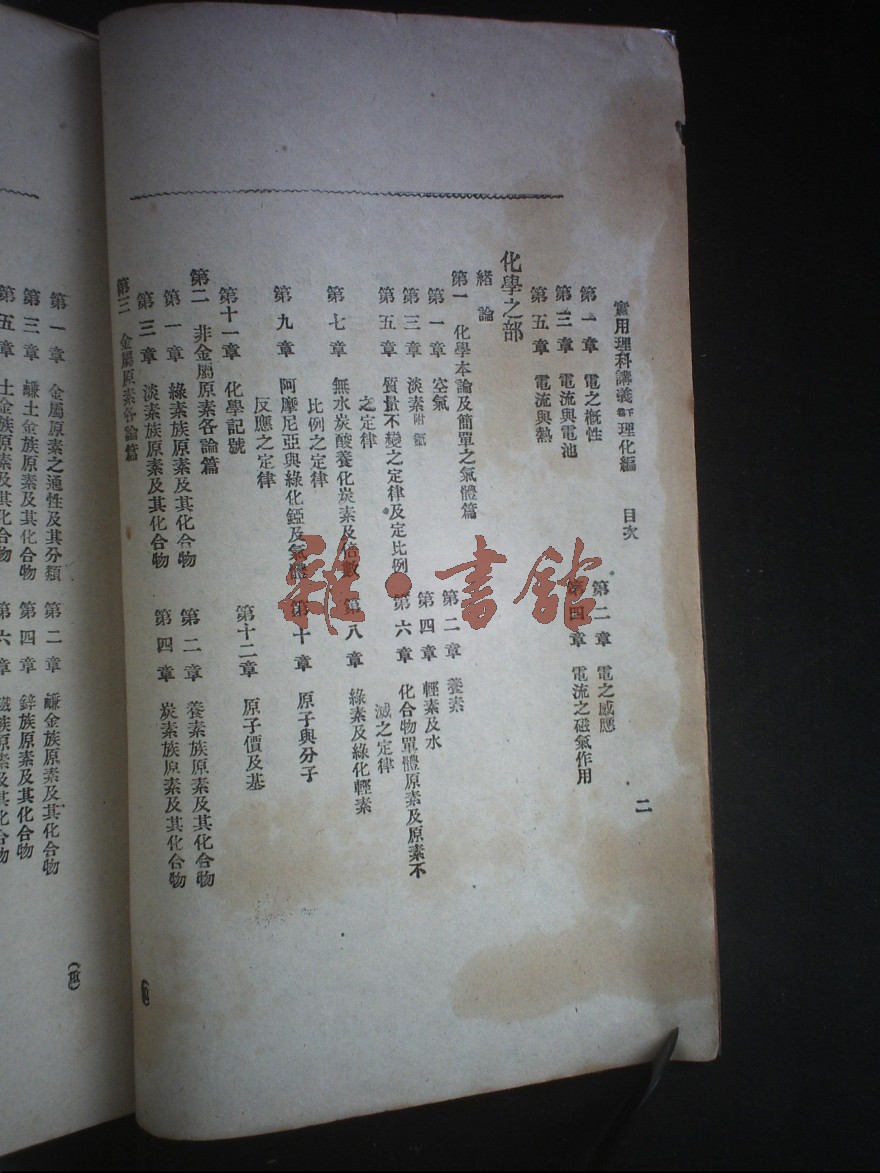 實用理科講義 卷下 理化編 目次 二
第一章 電之概性 第二章 電之感應
第三章 電流與電池 第四章 電流之磁氣作用
第五章 電流與熱
化學之部
緒論
第一 化學本論及簡單之氣體篇
第一章 空氣 第二章 養素
第三章 淡素附氬 第四章 輕素及水
第五章 質量不變之定律及定比例之定律 第六章 化合物單體原素及原素不滅之定律
第七章 無水炭酸養化炭素及倍數比例之定律 第八章 綠素及綠化輕素
第九章 阿摩尼亞與綠化錏及氣體反應之定律 第十章 原子與分子
第十一章 化學記號 第十二章 原子價及基
第二 非金屬原素各論篇
第一章 綠素族原素及其化合物 第二章 養素族原素及其化合物
第三章 淡素族原素及其化合物 第四章 炭素族原素及其化合物
第三 金屬原素各論篇
第一章 金屬原素之通性及其分類 第二章 鹻金族原素及其化合物
第三章 鹻土金族原素及其化合物 第四章 鋅族原素及其化合物
第五章 土金族原素及其化合物 第六章 鐵族原素及其化合物
雜·書館